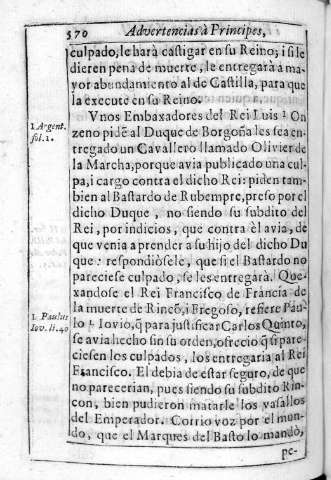 570 Advertencias à Principes,
culpado, le harà castigar en su Reino; i si le
dieren pena de muerte, le entregarà a ma-
yor abundamiento al de Castilla, para que
la execute en su Reino.
Vnos Embaxadores del Rei Luis ¹ On
zeno pidē al Duque de Borgoña les sea en
tregado un Cavallero llamado Olivier de
la Marcha, porque avia publicado una cul-
pa, i cargo contra el dicho Rei: piden tam-
bien al Bastardo de Rubempre, preso por el
dicho Duque, no siendo su subdito del
Rei, por indicios, que contra èl avia, de
que venia a prender a su hijo del dicho Du
que: respondiòsele, que si el Bastardo no
pareciese culpado, se les entregarà. Que-
xandose el Rei Francisco de Francia de
la muerte de Rincō, i Fregoso, refiere Pau-
lo ¹ Iovio, q̃ para justificar Carlos Quinto,
se avia hecho sin su orden, ofreciò q̃ si pare-
ciesen los culpados, los entregaria al Rei
Francisco. El debia de estar seguro, de que
no parecerian, pues siendo su subdito Rin-
con, bien pudieron matarle los vasallos
del Emperador. Corrio voz por el mun-
do, que el Marques del Basto lo mandò,
pe-
1 Argent.
fol. 1.
1. Paulus
Iov. li. 40